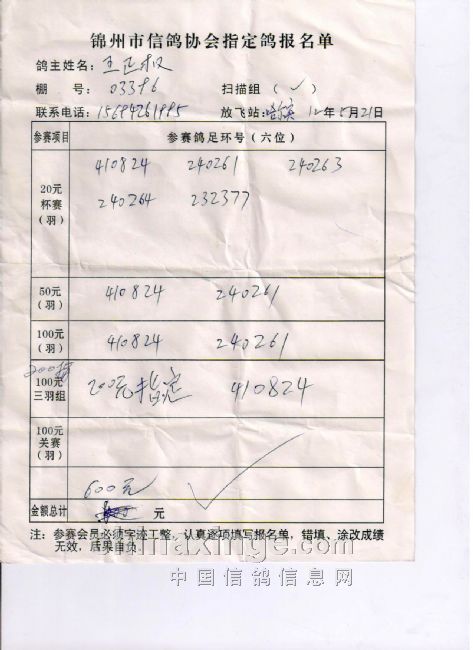 锦州市信鸽协会指定鸽报名单
鸽主姓名:王正权
棚 号:03396 扫描组(✓)
联系电话:15694261995 放飞站:哈尔滨 12年5月21日
参赛项目 参赛鸽足环号(六位)
20元杯赛(羽) 410824 240261 240263
240264 232377
50元(羽) 410824 240261
100元(羽) 410824 240261
100元三羽组 200元指定 410824
100元关赛(羽)
600元
金额总计 元
注:参赛会员必须字迹工整,认真逐项填写报名单,错填、涂改成绩
无效,后果自负。
chinaxinge.com
中国信鸽信息网